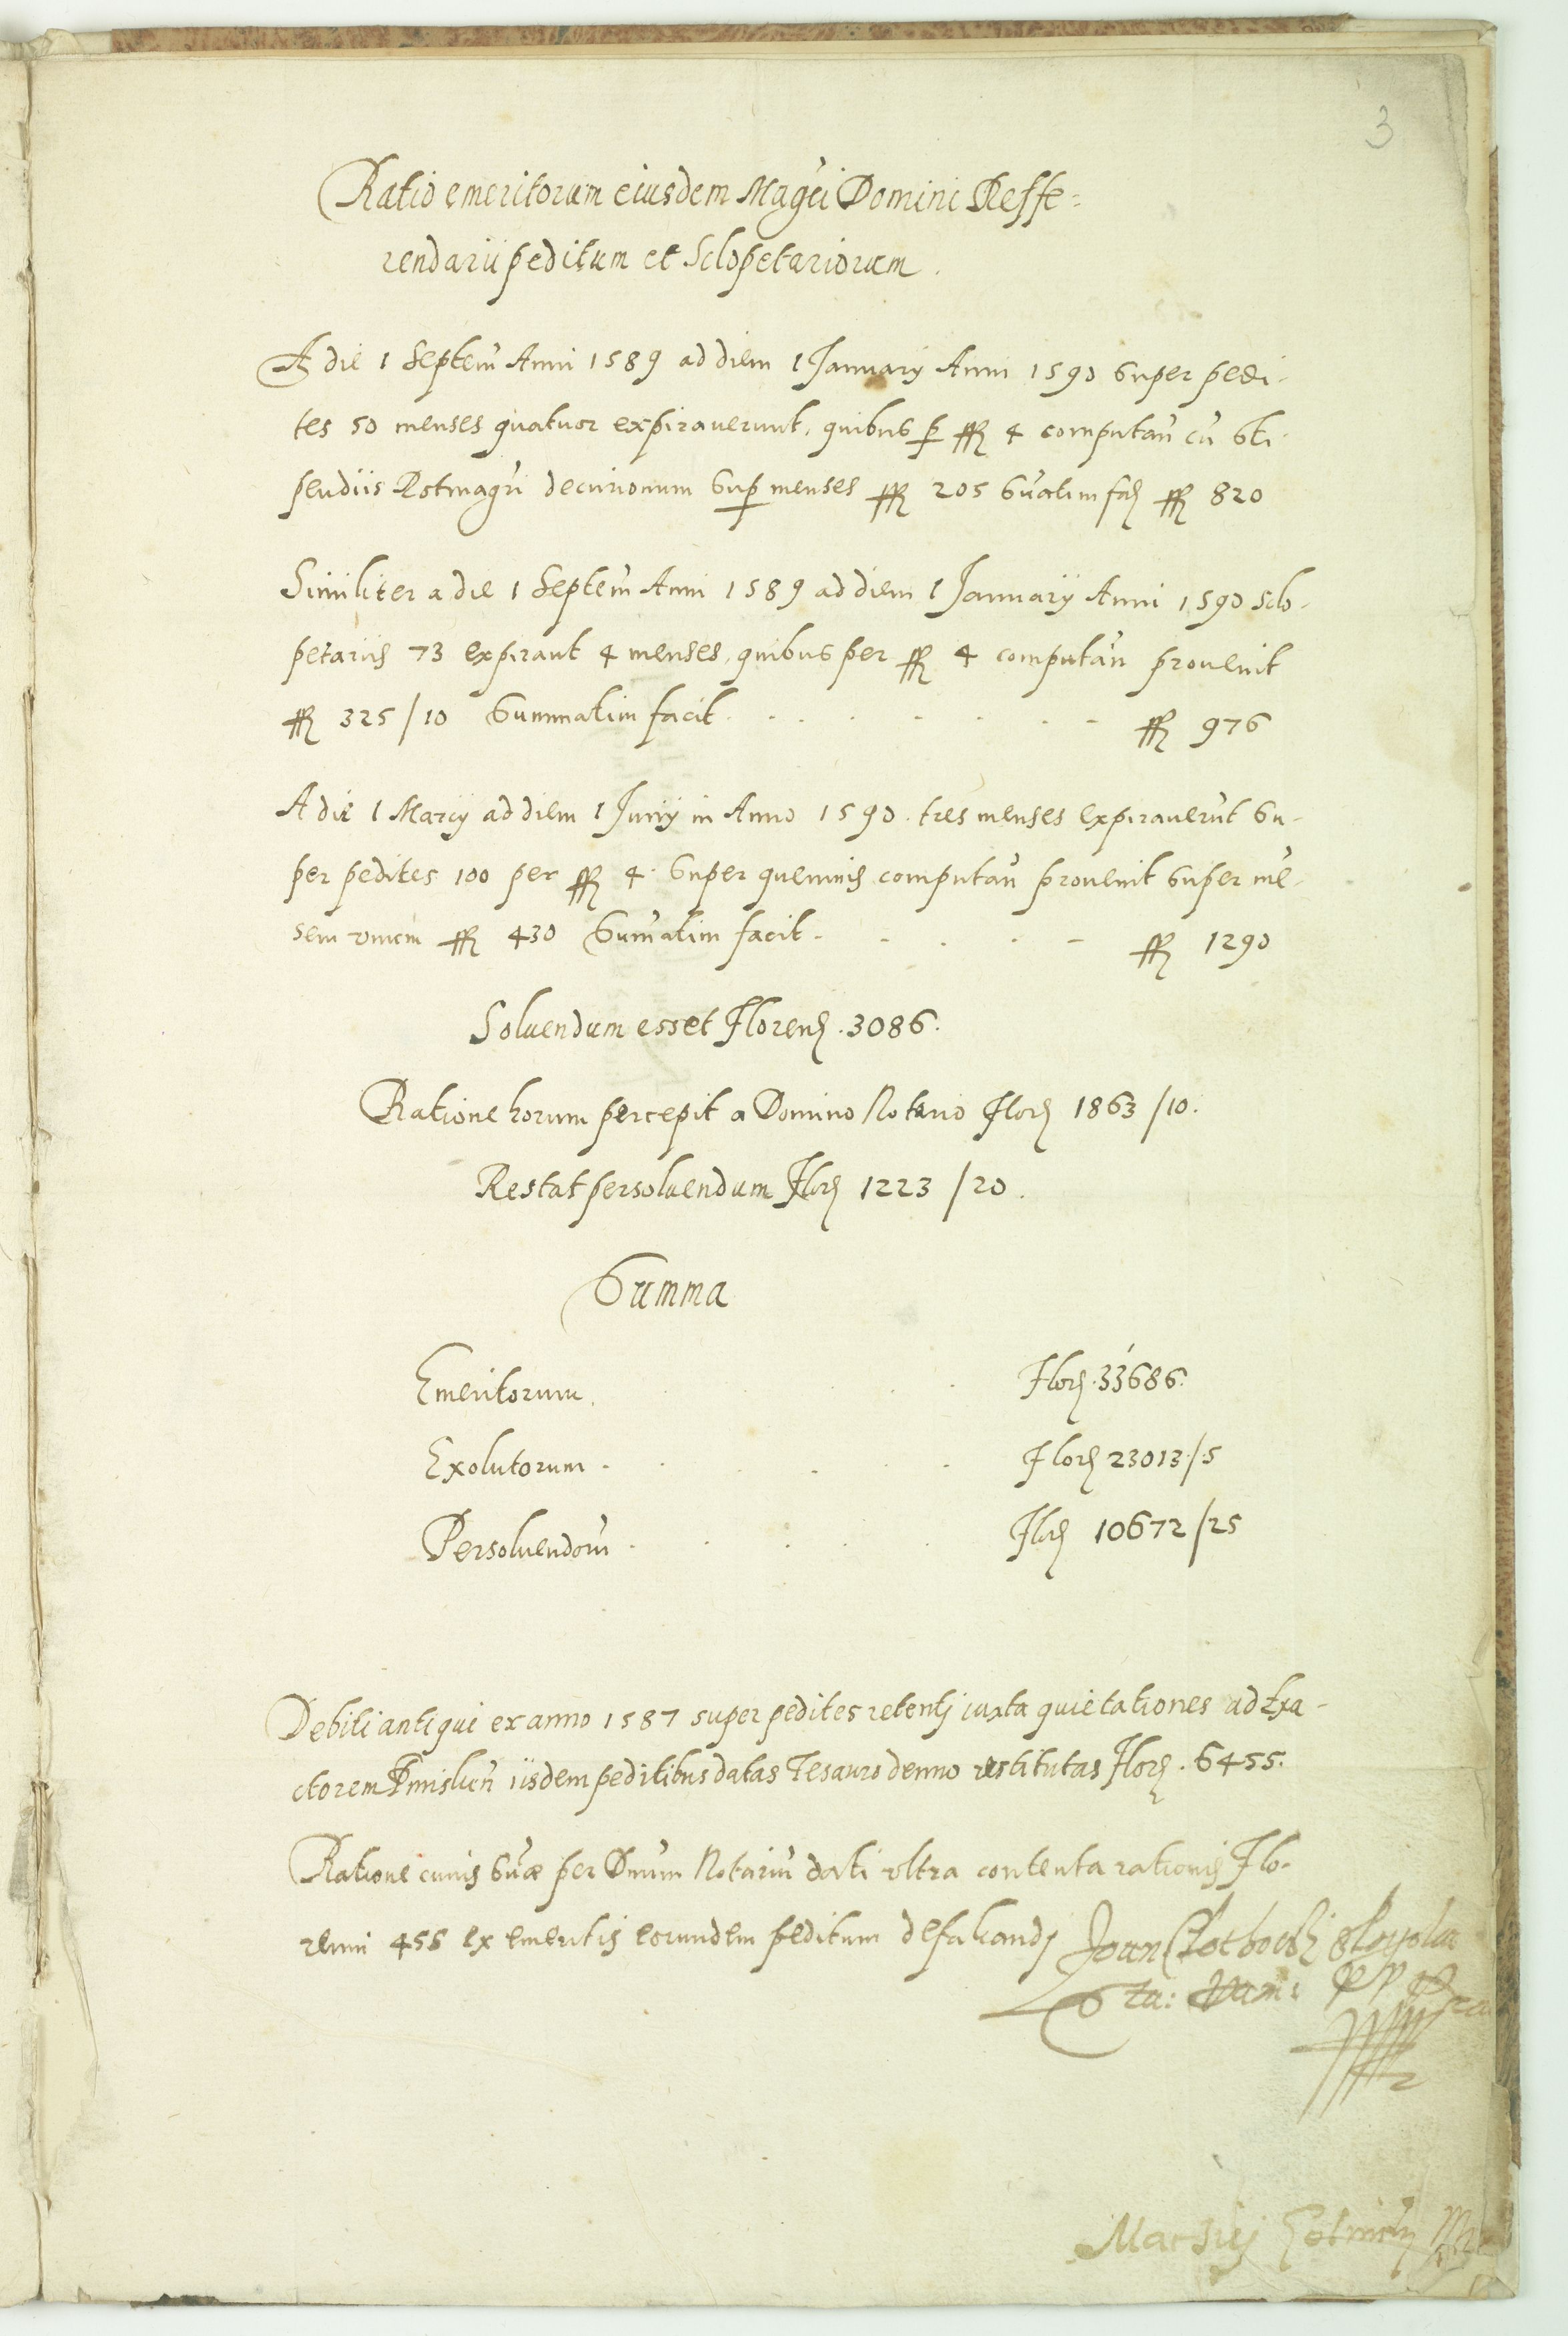 3
Ratio emeritorum eiusdem Magci Domini Reffe=
rendarii peditum et Sclopetariorum.
A die 1 Septem Anni 1589 ad diem 1 January Anni 1590 super pedi-
tes 50 menses quatuor expirauerunt, quibus p ffl 4 computan cu sti-
pendiis Rotmagri decurionum sup menses ffl 205 Suatim fa ffl 820
Similiter a die 1 Septem Anni 1589 ad diem 1 Januarij Anni 1590 sclo-
petariis 73 expirant 4 menses, quibus per ffl 4 computan prouenit
ffl 325/10 Summatim facit ffl 976
A die 1 Marcij ad diem 1 Junij in Anno 1590. tres menses expirauerut su-
per pedites 100 per ffl 4. super quemuis computan prouenit super me-
sem vnum ffl 430 Sumatim facit ffl 1290
Soluendum esset Floren. 3086.
Ratione horum percepit a Domino Notario Flor 1863/10.
Restat persoluendum Flor 1223/20.
Summa
Emeritorum. Flor. 33686.
Exolutorum. Flor 23013/5
Persoluendoru. Flor 10672/25
Debiti antiqui ex anno 1587 super pedites retenti iuxta quietationes ad Exa-
ctorem iisdem peditibus datas Tesauro denuo restitutas Flor. 6455.
Ratione cuius suae per Dnum Notariu dati vltra contenta rationis Flo-
reni 455 ex emeritis eorundem peditum defalcandi Joan